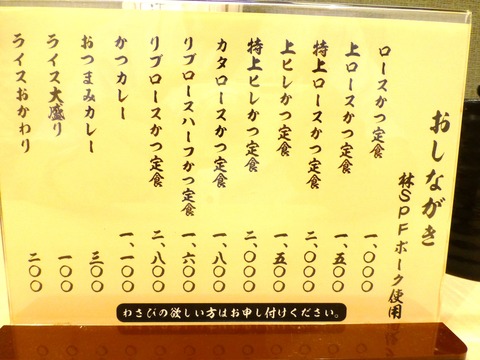 おしながき
林SPFポーク使用
ロースかつ定食 一、〇〇〇
上ロースかつ定食 一、五〇〇
特上ロースかつ定食 二、〇〇〇
上ヒレかつ定食 一、五〇〇
特上ヒレかつ定食 二、〇〇〇
カタロースかつ定食 一、八〇〇
リブロースハーフかつ定食 一、六〇〇
リブロースかつ定食 二、八〇〇
かつカレー 一、一〇〇
おつまみカレー 三〇〇
ライス大盛り 一〇〇
ライスおかわり 二〇〇
わさびの欲しい方はお申し付けください。